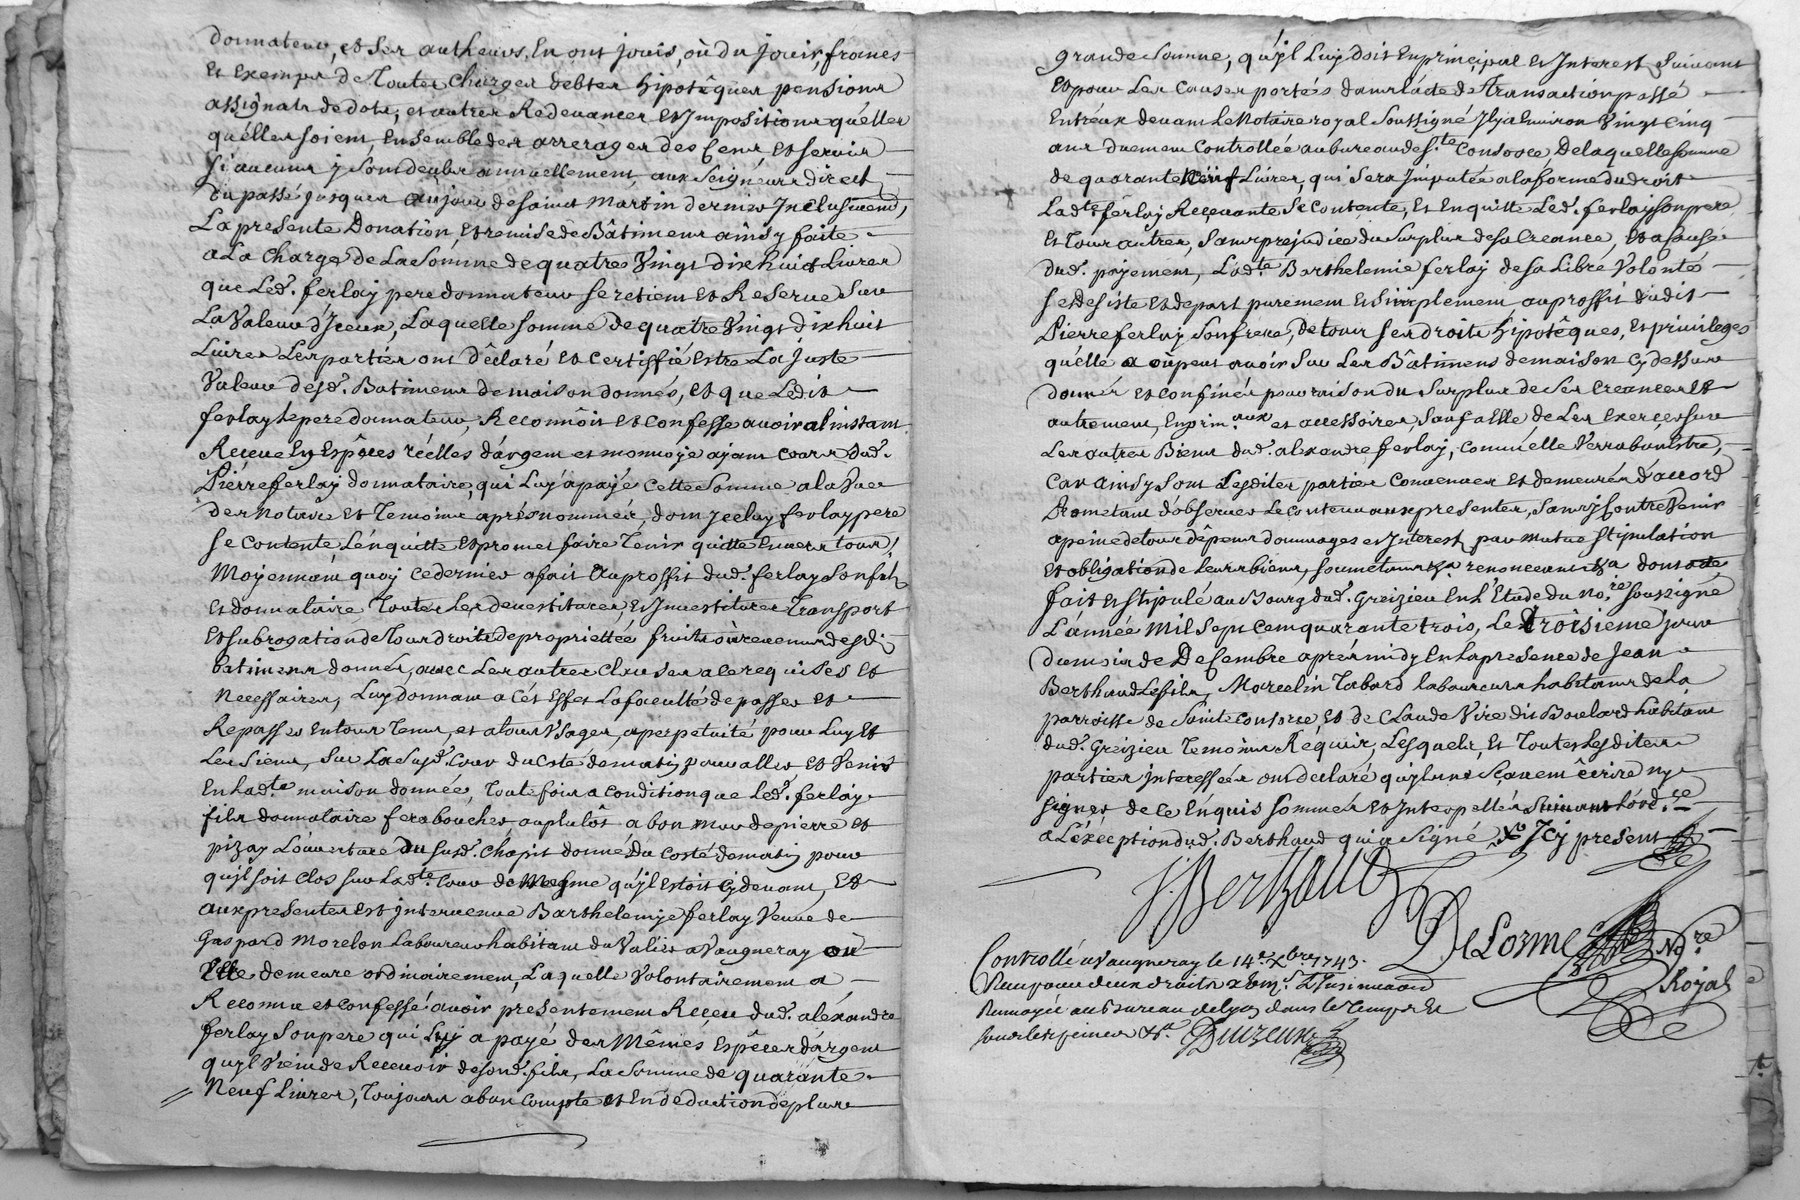 donnateur, et ses autheurs, En ont jouis, où du jouir, francs
et exempts de Toutes Charges debtes hipotêques pensions
assignats de dots, et autres Redevances et Impositions qu'elles
qu'elles soient, Ensemble des arrerages des Cens et servis
si aucuns y sont deubs annuellement, aux Seigneurs directs
Du passé jusques aujour de saint Martin dernier Inclusivement,
La presente Donation, et remise de Bâtiments ainsy faite
a La Charge de La somme de quatre Vingt dix huit Livres
que Led. ferlay pere donnateur se retient et Reserve sur
La Valeur d'Jceux, Laquelle somme de quatre Vingt dix huit
Livres Les parties ont Déclaré et Certiffié estre La juste
Valeur desd. Batiments de maison donnés, et que Ledit
ferlay le pere donnateur, Reconnoit et Confesse avoir al instant
Receue En Espéces réelles d'argent et monnoye ayant cours dud.
Piérre ferlay donnataire, qui Luy a payé cette Somme a la Vue
des Notaire et Temoins aprés nommés, dont jceluy ferlay pere
se Contente, L'enquitte et promet faire Tenir quitte Envers tous,
Moyennant quoy ce dernier a fait au proffit dud. ferlay son fils
et donnataire Toutes Les devestitures et Investitures Transport
et subrogation de Tous droits de proprietté fruits où revenus desd.
batiments donnés, avec Les autres Clauses a ce requises et
Necessaires, Luy donnant a Cés Effet La faculté de passer et
Repasser En tous Tems, et a tous Usages, a perpetuité pour Luy et
Les Siens, Sur La Susd. Cour du Costé de matin pour aller et Venir
En Lad.te maison donnée, Toute fois a condition que Led. ferlay
fils donnataire fera boucher au plutôt a bon mur de pierre et
pizay L'ouverture du susd. Chapit donné Du Costé de matin pour
qu'il soit Clos sur Lad.te Cour de Mesme qu'jl Estoit Cy devant, Et
aux presentes Est intervenue Barthelemie ferlay Veuve de
Gaspard Morelon Laboureur habitant du Valier a Vaugneray où
Elle demeure ordinairement, Laquelle Volontairement a
Reconnu et Confessé avoir presentement Reçeu dud. aléxandre
ferlay Son pere qui Luy a payé des Mêmes Espêces d'argent
qu'jl Vient de Recevoir de sond. fils, La Somme de quarante
Neuf Livres, Toujours a bon Compte et En déduction de plus
grande Somme, qu'jl Luy doit En principal et Interest Suivant
et pour Les Causes portés dans l'acte de Transaction passé
Entréux devant Le Notaire royal Soussigné Jl y a Environ Vingt Cinq
ans Duement Controllée au bureau de S.te Consorce, De laquelle somme
de quarante Neuf Livres, qui Sera Imputée a la forme du droit
Lad.te ferlay Recevante Se Contente, Et En quitte Led. ferlay son pere
et Tous autres, Sans prejudice du Surplus de sa Creance, et a Cause
dud. payement, Lad.te Barthelemie ferlay de sa Libre Volonté
se desiste et depart purement et simplement au proffit dudit
Pierre ferlay Son frere, De tous ses droits hipotêques, et privileges
qu'elle a où peut avoir Sur Les Bâtiments de maison Cy dessus
donnés et Confinés pour raison du Surplus de Ses Creances Et
autrement, En prin.aux et accessoires, Sauf a Elle de Les Exercer sur
Les autres Biens dud. alexandre ferlay, Comme elle Verra bon Estre,
Car Ainsy Sont Lesdites parties Convenues et demeurés D'accord
Prometant d'observer Le Contenu aux presentes, Sans y Contrevenir
a peine de tous dépens dommages et Interest par mutue Stipulation
et obligation de Leurs biens, soumetant &.a renonceant &.a dont acte,
fait et stipulé au Bourg dud. Greizieu En L'Etude du No.re soussigné
L'année Mil Sept Cent quarante trois, Le troisieme jour
Du mois de Desembre aprés midy En la presence de Jean
Berthaud Le fils, Marcelin Tabard laboureurs habitants de La
parroisse de Sainte Consorce et de Claude Vire dit Boulard habitant
dud. Greizieu Temoins Réquis, Lesquels, Et Toutes Lesdites
parties Interessées ont declaré qu'jls ne Sçavent êcrire ny
signer de Ce Enquis Sommés et Interpellés Suivant L'ord.ce
a L'exception dud. Berthaud qui a Signé Jcy present
J. Berthaud
DeLorme No.re
Royal
Controllé a Vaugneray le 14.e Xbre 1743.
L'Insinuation
Renvoyée au Bureau de Lyon dans le Temps Et
sous les peines &.a